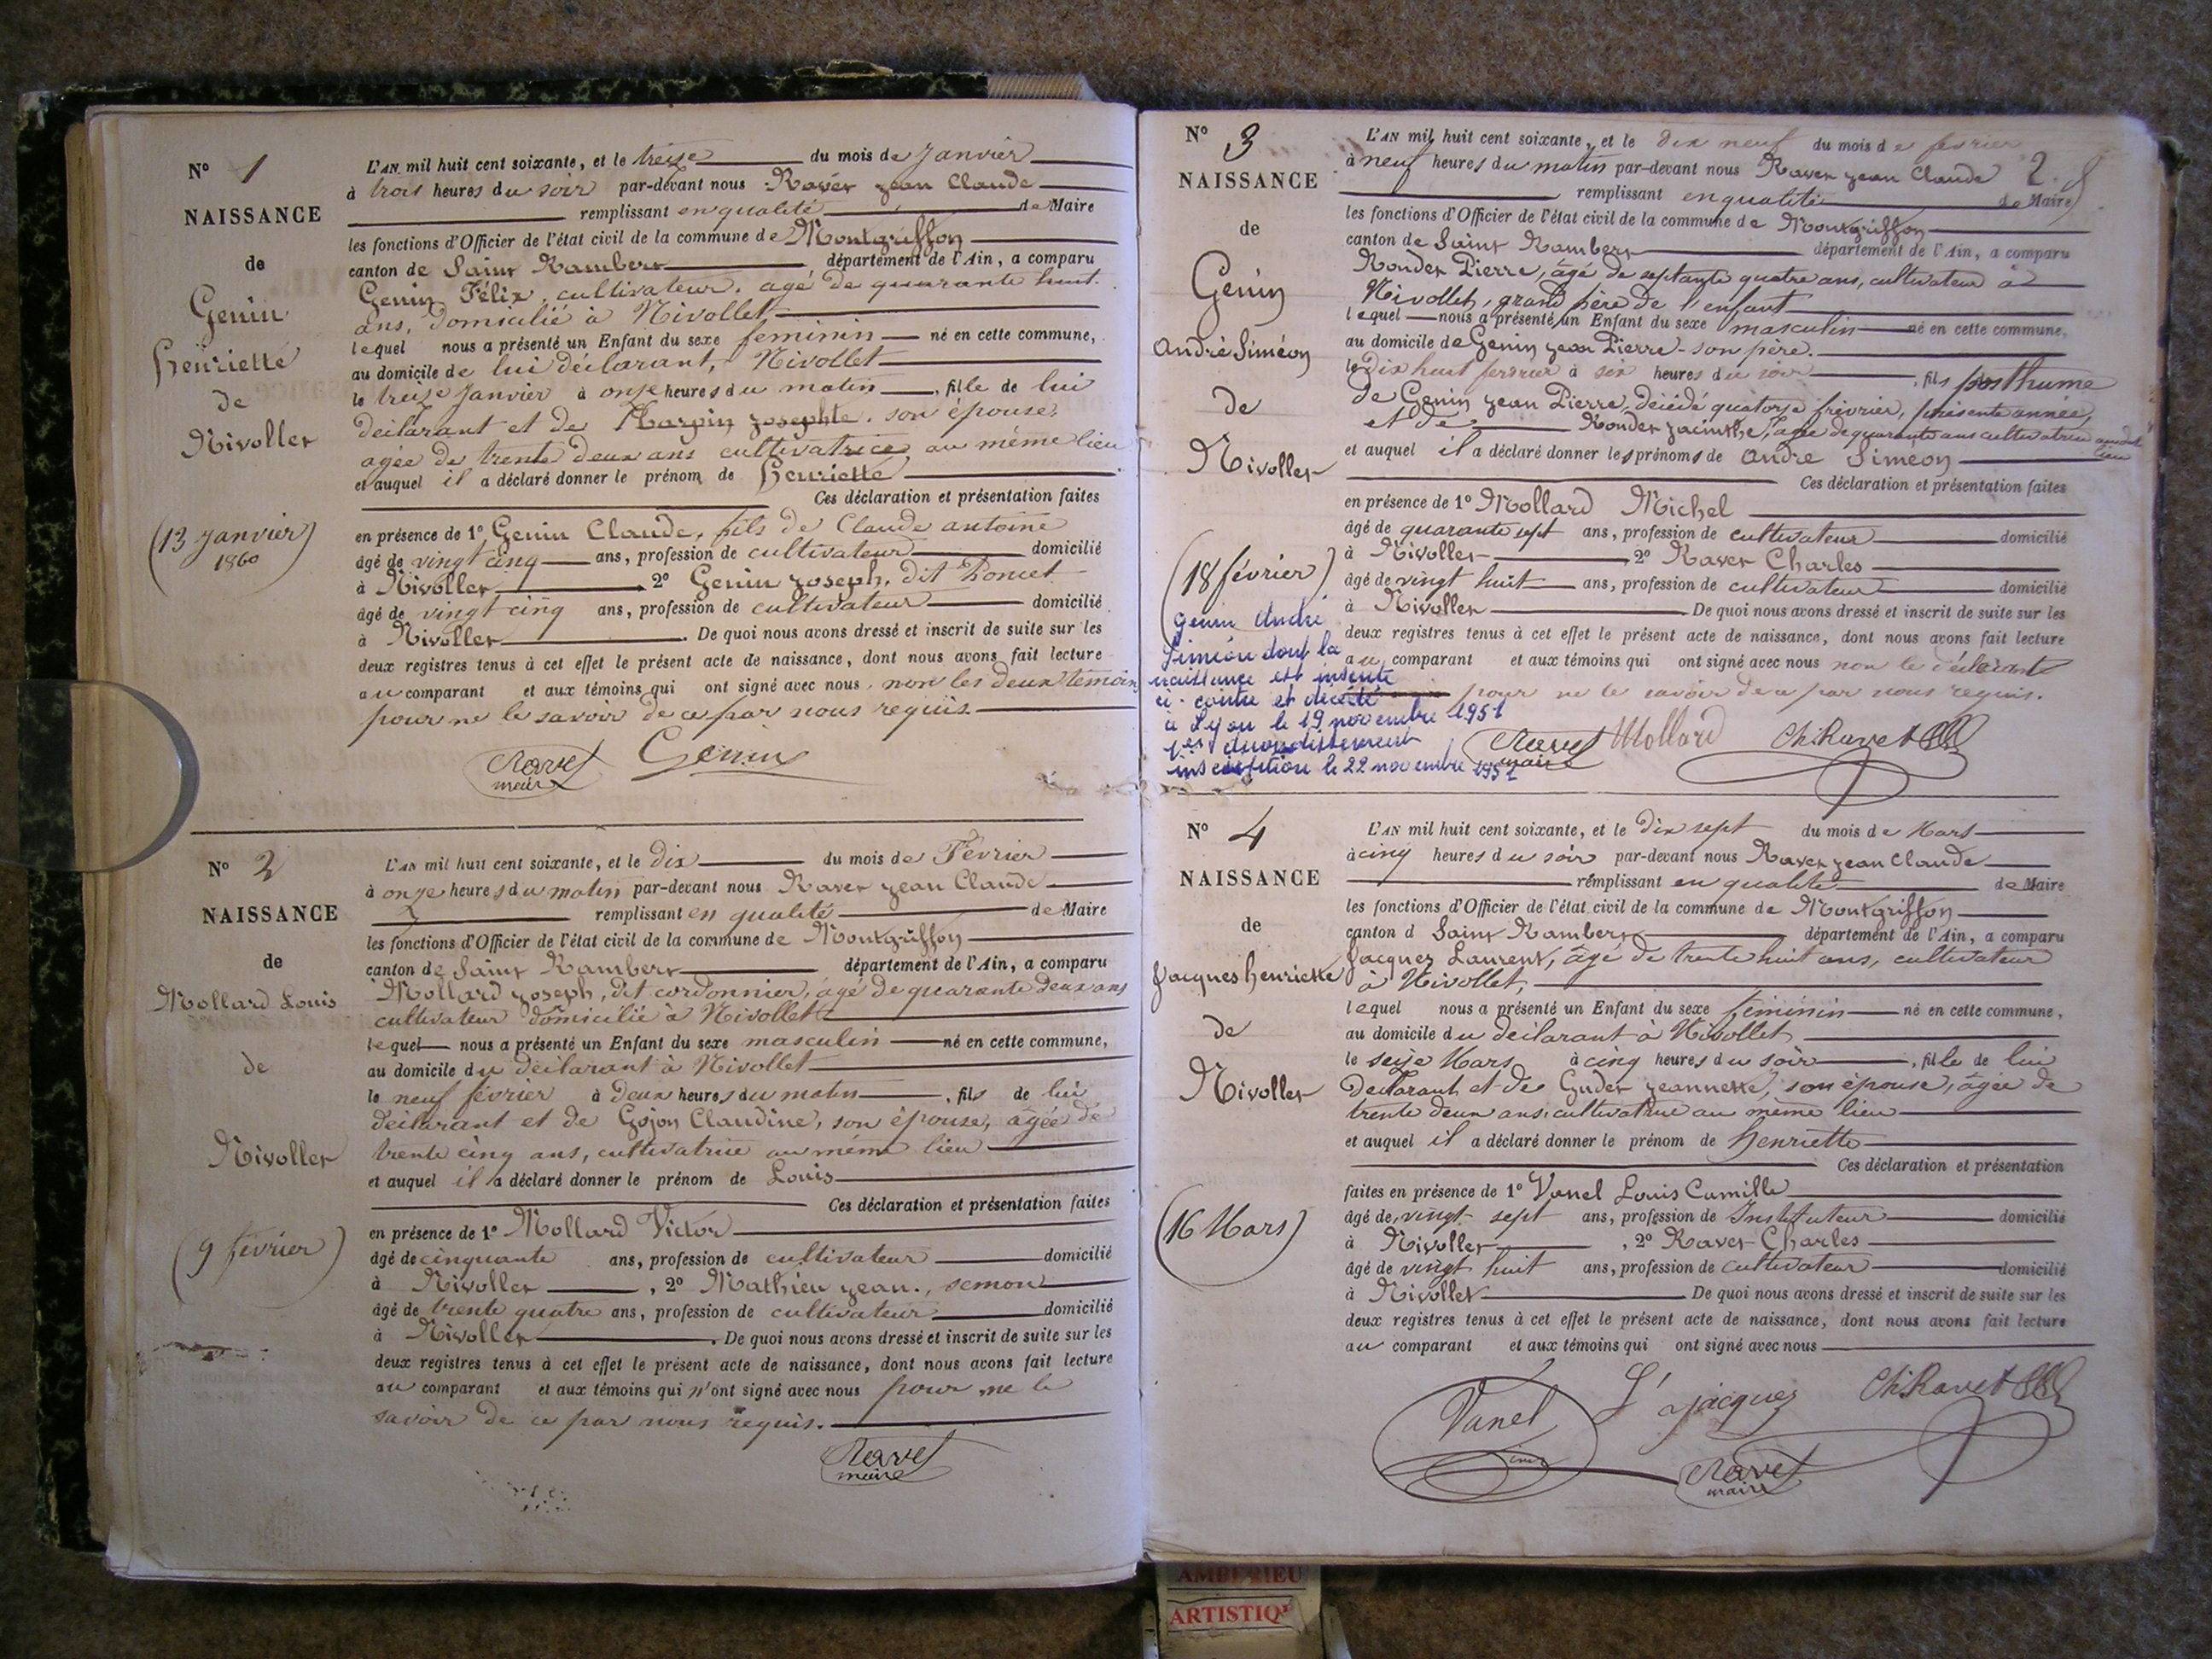 N° 1
NAISSANCE
de
Genin
henriette
de
Nivollet
(13 Janvier)
1860
L'AN mil huit cent soixante, et le treize du mois de Janvier
à trois heures du soir par-devant nous Ravet Jean Claude
remplissant en qualité de Maire
les fonctions d'Officier de l'état civil de la commune de Montgriffon
canton de Saint Rambert département de l'Ain, a comparu
Genin Félix, cultivateur, agé de quarante huit
ans, domicilié à Nivollet
lequel nous a présenté un Enfant du sexe feminin né en cette commune,
au domicile de lui déclarant, Nivollet
le treize Janvier à onze heures du matin, fille de lui
déclarant et de Josephte, son épouse,
agée de trente deux ans cultivatrice au même lieu
et auquel il a déclaré donner le prénom de henriette
Ces déclaration et présentation faites
en présence de 1° Genin Claude, fils de Claude antoine
âgé de vingt cinq ans, profession de cultivateur domicilié
à Nivollet 2° Genin Joseph, dit Poncet
âgé de vingt cinq ans, profession de cultivateur domicilié
à Nivollet. De quoi nous avons dressé et inscrit de suite sur les
deux registres tenus à cet effet le présent acte de naissance, dont nous avons fait lecture
au comparant et aux témoins qui ont signé avec nous, non les deux temoins
pour ne le savoir de ce par nous requis.
Ravet Genin
maire
N° 2
NAISSANCE
de
Mollard Louis
de
Nivollet
(9 février)
L'AN mil huit cent soixante, et le dix du mois de Février
à onze heures du matin par-devant nous Ravet Jean Claude
remplissant en qualité de Maire
les fonctions d'Officier de l'état civil de la commune de Montgriffon
canton de Saint Rambert département de l'Ain, a comparu
Mollard Joseph, dit cordonnier, âgé de quarante deux ans
cultivateur domicilié à Nivollet
lequel nous a présenté un Enfant du sexe masculin né en cette commune,
au domicile du déclarant à Nivollet
le neuf février à deux heures du matin, fils de lui
déclarant et de Gojon Claudine, son épouse, âgée de
trente cinq ans, cultivatrice au même lieu
et auquel il a déclaré donner le prénom de Louis
Ces déclaration et présentation faites
en présence de 1° Mollard Victor
âgé de cinquante ans, profession de cultivateur domicilié
à Nivollet, 2° Mathieu Jean, semon
âgé de trente quatre ans, profession de cultivateur domicilié
à Nivollet. De quoi nous avons dressé et inscrit de suite sur les
deux registres tenus à cet effet le présent acte de naissance, dont nous avons fait lecture
au comparant et aux témoins qui n'ont signé avec nous pour ne le
savoir de ce par nous requis.
Ravet
maire
N° 3
NAISSANCE
de
Genin
André Siméon
de
Nivollet
(18 février)
Genin André
Siméon dont la
naissance est inscrite
ci-contre est décédé
à Lyon le 19 novembre 1951
arrondissement
inscription le 22 novembre 1951
L'AN mil huit cent soixante, et le dix neuf du mois de février
à neuf heures du matin par-devant nous Ravet Jean Claude 2
remplissant en qualité de Maire
les fonctions d'Officier de l'état civil de la commune de Montgriffon
canton de Saint Rambert département de l'Ain, a comparu
Rondet Pierre, âgé de septante quatre ans, cultivateur à
Nivollet, grand père de l'enfant
lequel nous a présenté un Enfant du sexe masculin né en cette commune,
au domicile de Genin Jean Pierre son père.
le Dix huit février à six heures du soir, fils posthume
de Genin Jean Pierre, décédé quatorze février, présente année,
et de Rondet Jacinthe, agée de quarante ans cultivatrice au dit
lieu
et auquel il a déclaré donner les prénoms de André Siméon
Ces déclaration et présentation faites
en présence de 1° Mollard Michel
âgé de quarante sept ans, profession de cultivateur domicilié
à Nivollet 2° Ravet Charles
âgé de vingt huit ans, profession de cultivateur domicilié
à Nivollet De quoi nous avons dressé et inscrit de suite sur les
deux registres tenus à cet effet le présent acte de naissance, dont nous avons fait lecture
au comparant et aux témoins qui ont signé avec nous non le déclarant
pour ne le savoir de ce par nous requis.
Ravet Mollard Ch. Ravet
maire
N° 4
NAISSANCE
de
Jacques henriette
de
Nivollet
(16 Mars)
L'AN mil huit cent soixante, et le dix sept du mois de Mars
à cinq heures du soir par-devant nous Ravet Jean Claude
remplissant en qualité de Maire
les fonctions d'Officier de l'état civil de la commune de Montgriffon
canton d Saint Rambert département de l'Ain, a comparu
Jacques Laurent, âgé de trente huit ans, cultivateur
à Nivollet,
lequel nous a présenté un Enfant du sexe féminin né en cette commune,
au domicile du déclarant à Nivollet
le seize Mars à cinq heures du soir, fille de lui
déclarant et de Gudet Jeannette, son épouse, âgée de
trente deux ans, cultivatrice au même lieu
et auquel il a déclaré donner le prénom de henriette
Ces déclaration et présentation
faites en présence de 1° Vanel Louis Camille
âgé de vingt sept ans, profession de Instituteur domicilié
à Nivollet, 2° Ravet Charles
âgé de vingt huit ans, profession de cultivateur domicilié
à Nivollet De quoi nous avons dressé et inscrit de suite sur les
deux registres tenus à cet effet le présent acte de naissance, dont nous avons fait lecture
au comparant et aux témoins qui ont signé avec nous
Vanel L' Jacques Ch. Ravet
Ravet
maire
AMBERIEU
ARTISTIQ